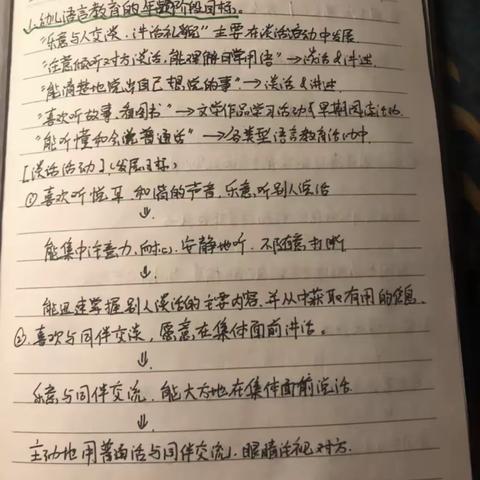 1.幼儿语言教育的年龄阶段目标。
“乐意与人交谈,讲话礼貌”主要在谈话活动中发展
“注意倾听对方谈话,能理解日常用语”→谈话&讲述.
“能清楚地说出自己想说的事”→谈话&讲述.
“喜欢听故事、看图书”→文学作品学习活动&早期阅读活动.
“能听懂和会说普通话”→各类型语言教育活动中.
[谈话活动](发展目标)
①喜欢听悦耳、和谐的声音,乐意听别人谈话
⇓.
能集中注意力,耐心,安静地听,不随意打断
⇓.
能迅速掌握别人谈话的主要内容,并从中获取有用的信息.
②.喜欢与同伴交谈,愿意在集体面前讲话。
⇓.
乐意与同伴交流,能大方地在集体面前说话
⇓.
主动地用普通话与同伴交流,眼睛注视对方.